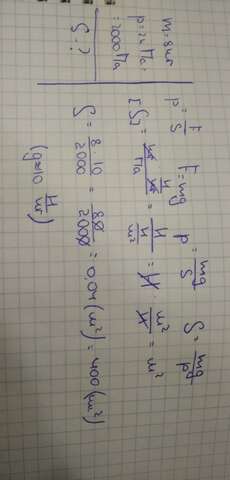 m=8 кг
p=2 кПа=
=2000 Па
S-?
p=F/S F=mg p=mg/S S=mg/p
[S]=кг·Н/кг/Па=Н/Н/м²=Н·м²/Н=м²
S=8·10/2000=80/2000=0,04(м²)=400(см²)
(g≈10 Н/кг)